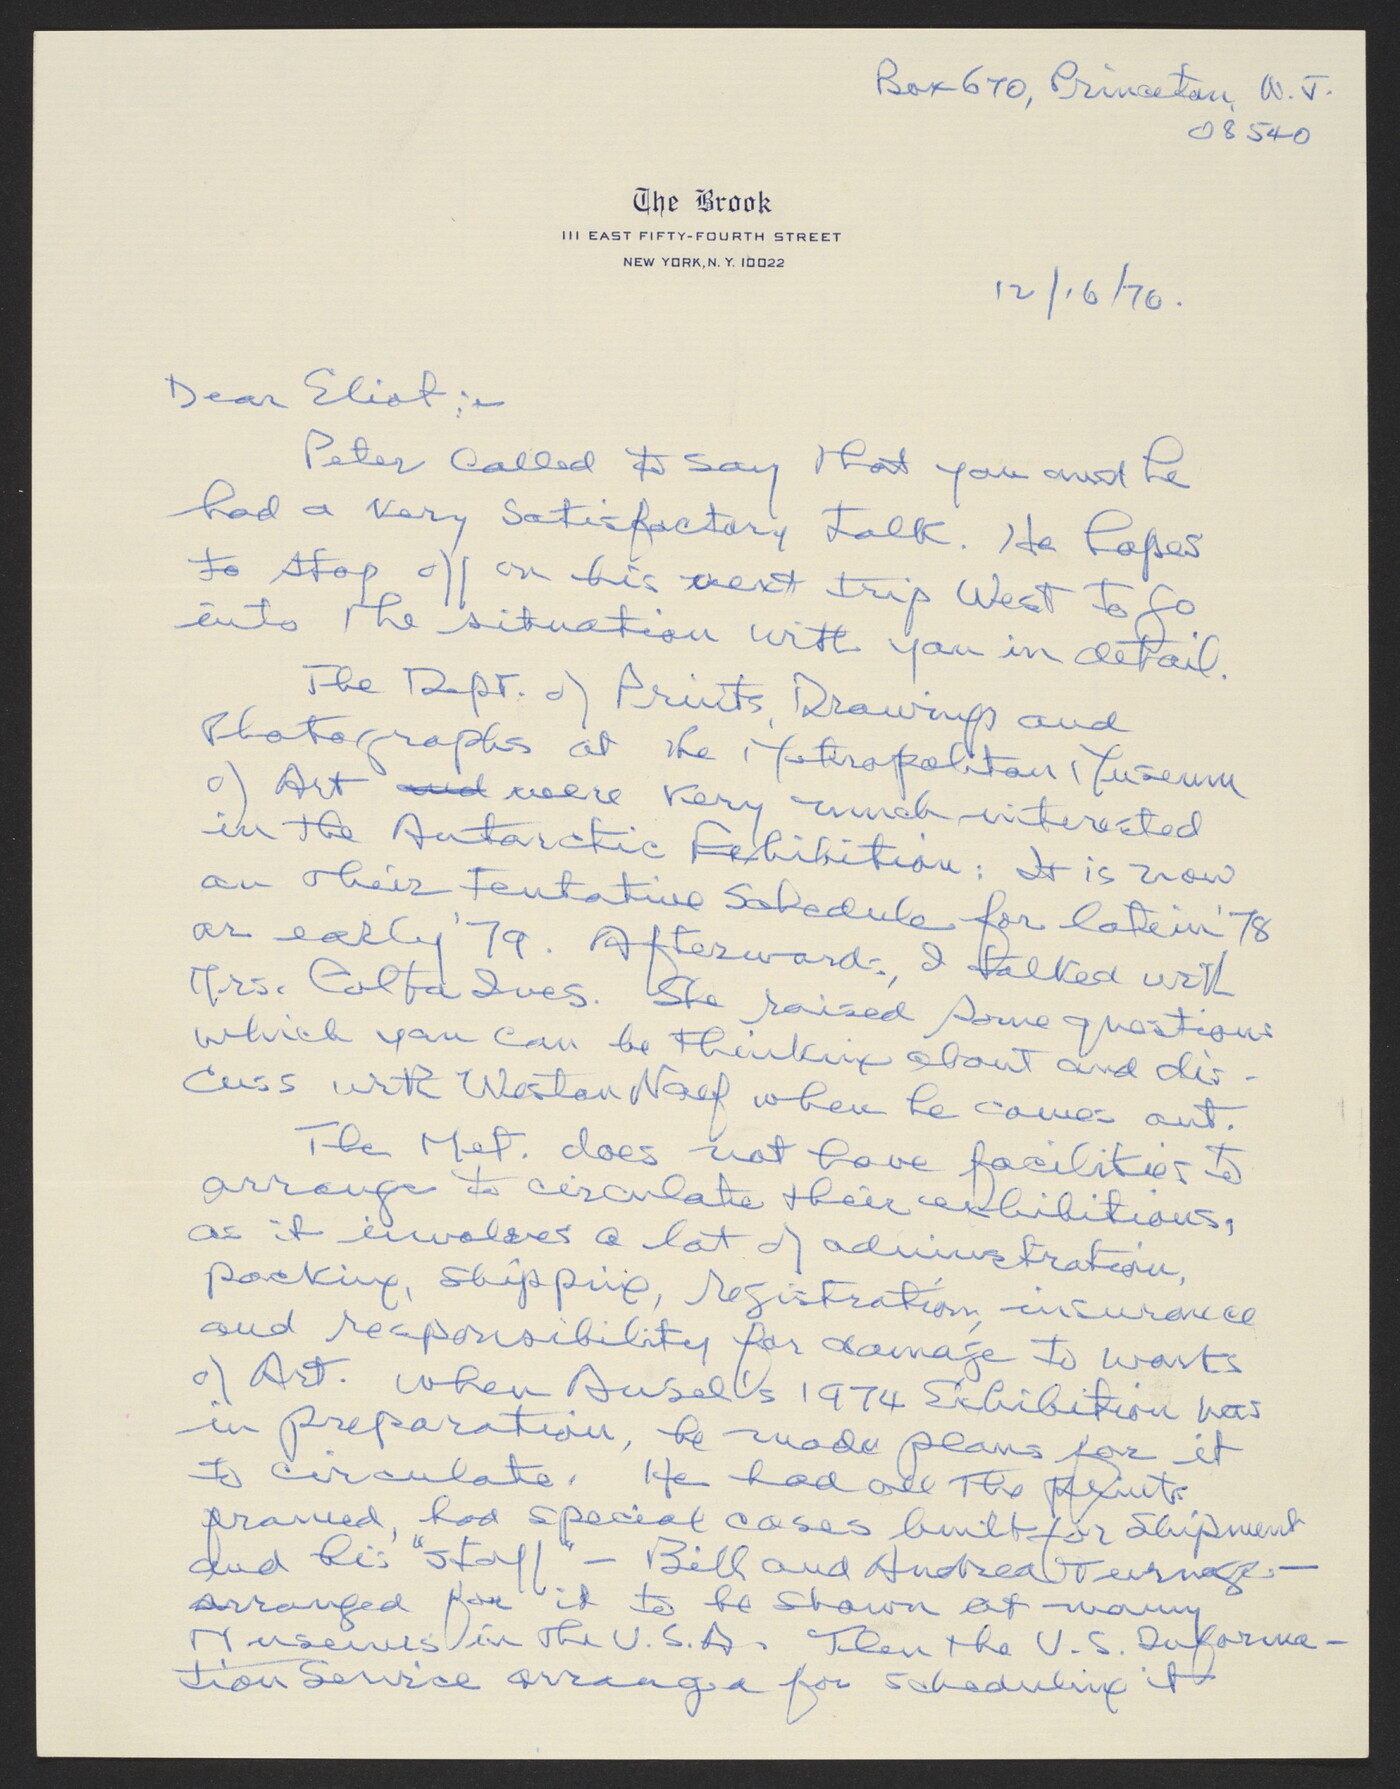 Box 670, Princeton, N.J.
08540
The Brook
111 EAST FIFTY-FOURTH STREET
NEW YORK, N. Y. 10022
12/16/76.
Dear Eliot:-
Peter called to say that you and he
had a very satisfactory talk. He hopes
to stop off on his next trip West to go
into the situation with you in detail.
The Dept. of Prints, Drawings and
Photographs at the Metropolitan Museum
of Art and were very much interested
in the Antarctic Exhibition: It is now
on their tentative schedule for late in '78
or early '79. Afterwards, I talked with
Mrs. Colta Ives. She raised some questions
which you can be thinking about and dis-
cuss with Weston Naef when he comes out.
The Met. does not have facilities to
arrange to circulate their exhibitions,
as it involves a lot of administration,
packing, shipping, registration, insurance
and responsibility for damage to works
of Art. When Ansel's 1974 Exhibition was
in preparation, he made plans for it
to circulate. He had all the prints
framed, had special cases built for shipment
and his "staff" - Bill and Andrea Turnage -
arranged for it to be shown at many
Museums in the U.S.A. Then the U.S. Informa-
tion Service arranged for scheduling it